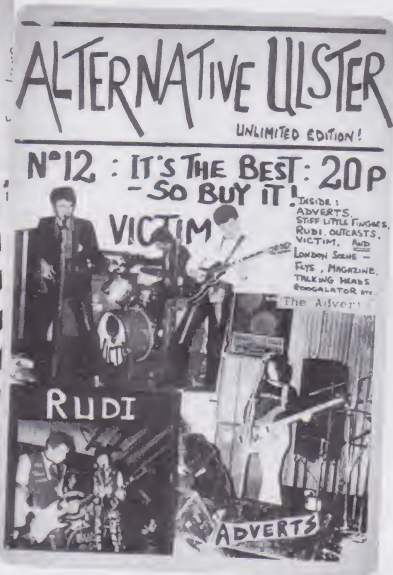 ALTERNATIVE ULSTER
UNLIMITED EDITION!
Nº12 : IT'S THE BEST : 20P
- SO BUY IT!
INSIDE :
ADVERTS,
STIFF LITTLE FINGERS,
RUDI, OUTCASTS,
VICTIM, AND
LONDON SCENE -
FLYS, MAGAZINE,
TALKING HEADS
ROOGALATOR
VICTIM
The Adver
RUDI
ADVERTS